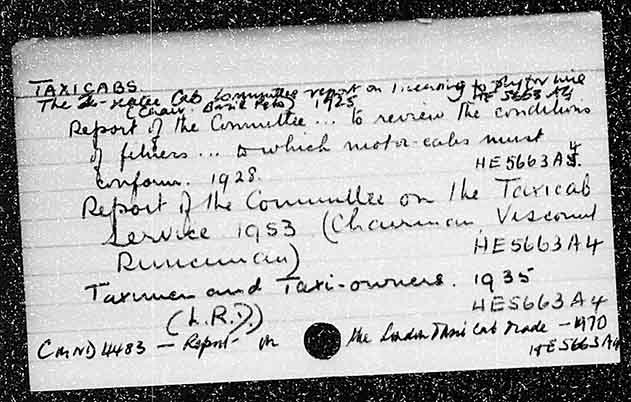 TAXICABS.
The Cab Committee report on licensing to ply for hire
(Chair. Basil Peto) 1925 HE 5663 A4
Report of the Committee ... to review the conditions
of fitness ... to which motor-cabs must
conform. 1928. HE5663A4.
Report of the Committee on the Taxicab
Service 1953 (Chairman, Viscount
Runciman) HE5663A4
Taximen and Taxi-owners. 1935
(L.R.D.) HE5663A4
CMND 4483 — Report on the London Taxi Cab Trade — 1970
HE5663A4